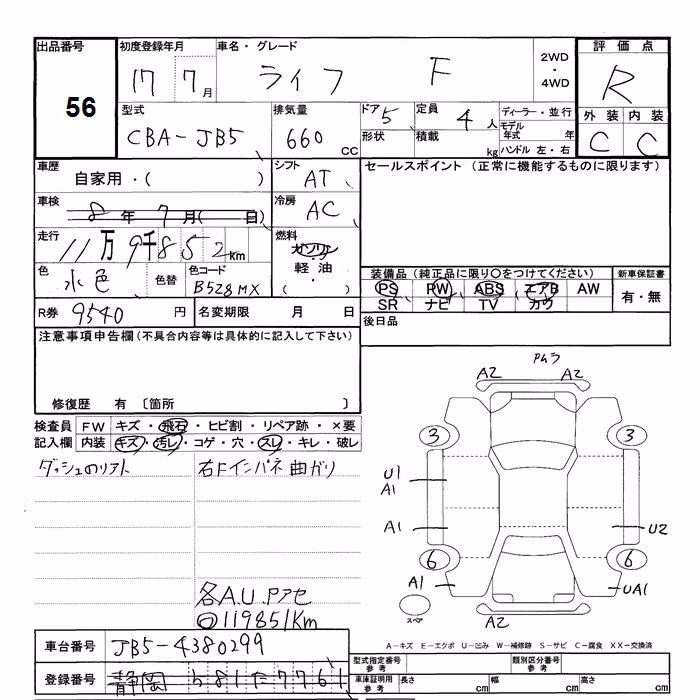 出品番号 初度登録年月 車名・グレード 2WD・4WD 評価点
56 17 7月 ライフ F R
型式 排気量 ドア 5 定員 4人 ディーラー・並行 外装 内装
CBA-JB5 660cc 形状 積載 kg モデル年式 年 C C
ハンドル 左・右
車歴 シフト セールスポイント (正常に機能するものに限ります)
自家用・( ) AT
車検 冷房
8年 7月( 日) AC
走行 11万9千852Km 燃料 ガソリン・軽油・( )
色 色替 色コード 装備品 (純正品に限り〇をつけてください) 新車保証書
水色 B528MX PS PW ABS エアB AW 有・無
SR ナビ TV カワ
R券 9540円 名変期限 月 日 後日品
注意事項申告欄(不具合内容等は具体的に記入して下さい)
修復歴 有 〔箇所 〕
検査員 FW キズ・飛石・ヒビ割・リペア跡・×要
記入欄 内装 キズ・汚レ・コゲ・穴・スレ・キレ・破レ
右Fインパネ曲ガリ
各A.U.Pアセ
119851Km
A2 A2
3 3
U1
A1
A1 U2
6 6
A1 UA1
スペア A2
A-キズ E-エクボ U-凹み W-補修跡 S-サビ C-腐食 XX-交換済
車台番号 JB5-4380299
登録番号 静岡 581 た 7761
型式指定番号 参考 類別区分番号 参考
車庫証明用 参考 長さ cm 幅 cm 高さ cm